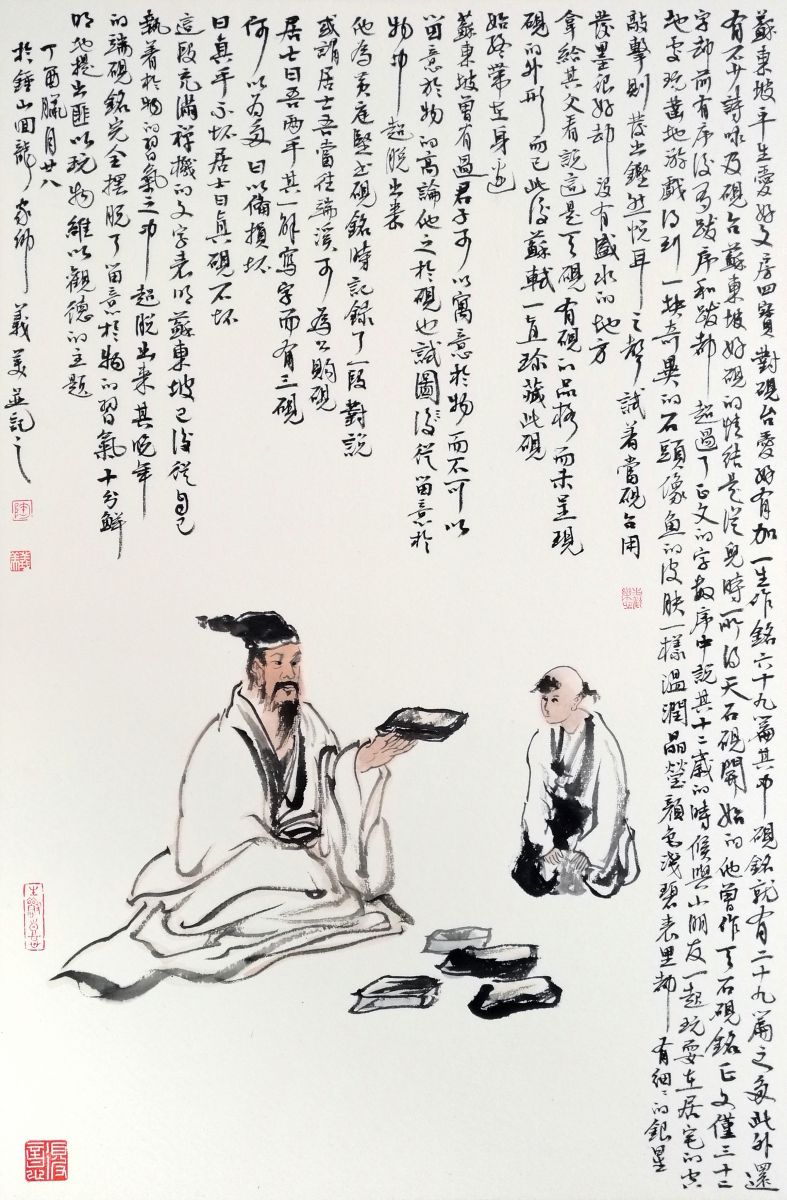 蘇東坡平生愛好文房四寶對硯台愛好有加一生作銘六十九篇其中硯銘就有二十九篇之多此外還
有不少詩咏及硯台蘇東坡好硯的情結是從兒時一所得天石硯開始的他曾作了石硯銘正文僅三十二
字却前有序後有跋序和跋都一超過了正文的字數序中說其十二歲的時候與小朋友一起玩耍在居宅的空
地處玩鑿地游戲得到一块奇異的石頭像魚的皮肤一樣溫潤晶瑩顏色淺碧表里都一有細細的銀星
敲擊則發出鏗然悅耳之聲試着當硯台用
發墨很好却沒有盛水的地方
拿給其父看說這是天硯有硯的品格而未呈現
硯的外形而已此後蘇軾一直珍藏此硯
始終帶在身邊
蘇東坡曾有過君子可以寓意於物而不可以
留意於物的高論他之於硯也試圖從留意於
物中超脫出來
他為黃庭堅書硯銘時記錄了一段對說
或謂居士吾當往端溪可為公購硯
居士曰吾兩手其一解寫字而有三硯
何以為多曰以備損壞
曰真手不坏居士曰真硯不坏
這段充滿禅機的文字表明蘇東坡已從自己
執着於物的習氣之中超脫出來其晚年
的端硯銘完全擺脫了留意於物的習氣十分鮮
明地提出匪以玩物維以觀德的主題
丁酉臘月廿八
於鍾山回龍家鄉義美並記之